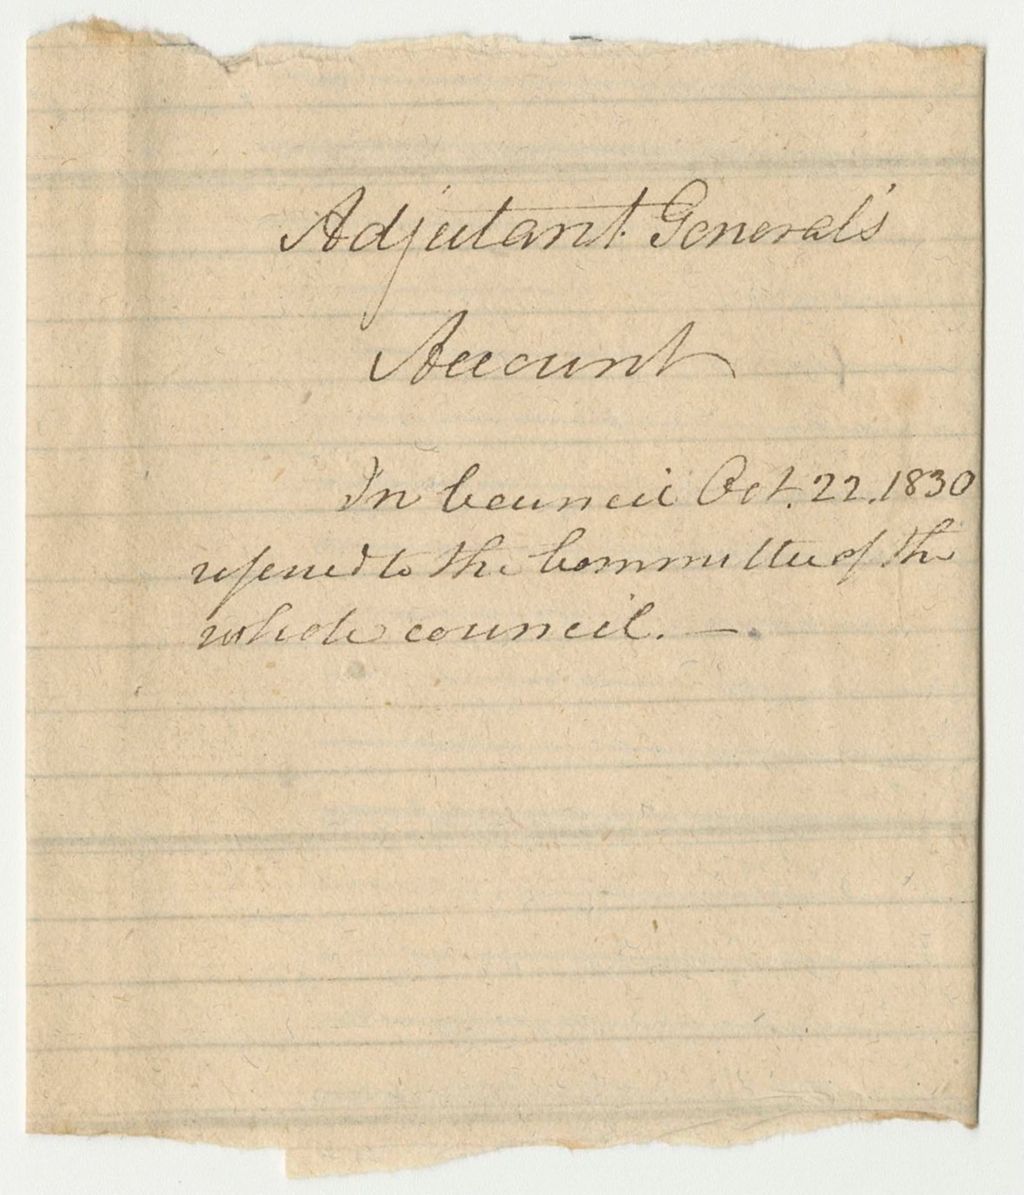 Adjutant General's
Account
In Council Oct. 22. 1830
referred to the Committee of the
whole council. —